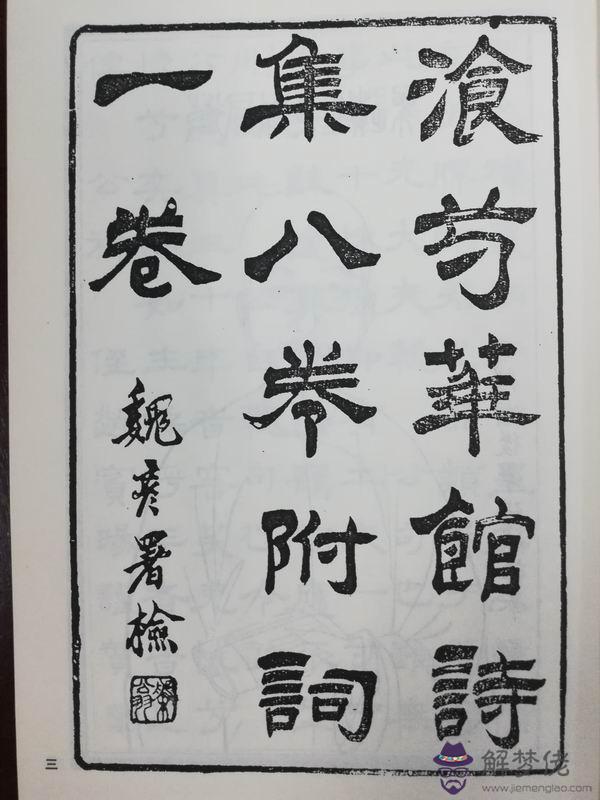 湌芍華館詩
集八卷附詞
一卷
魏彥署檢
三
解梦佬
www.jiemenglao.com